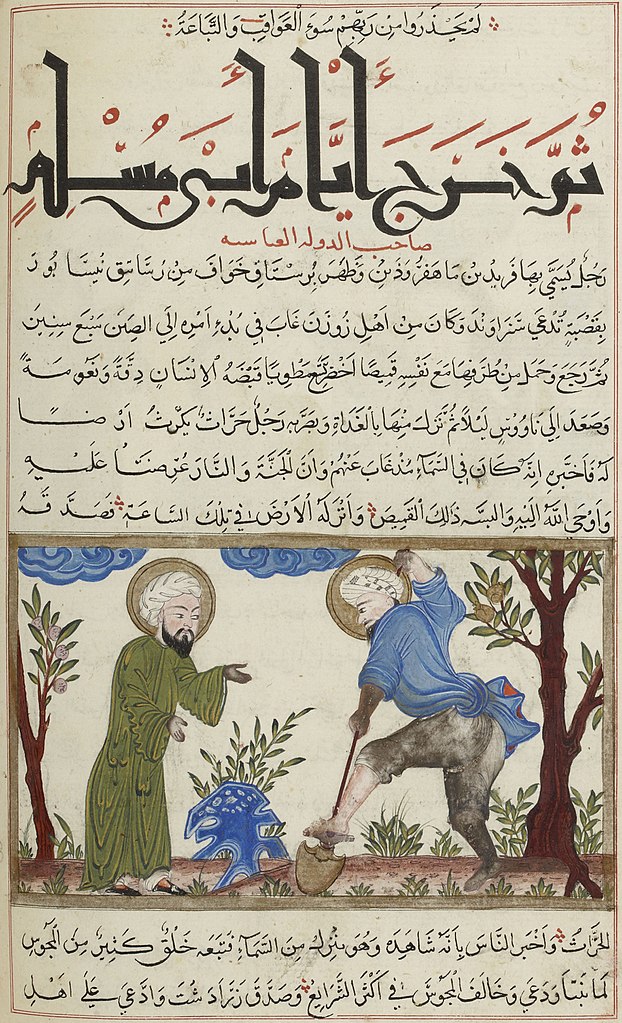 لم يحذروا من ربهم سوء العواقب والتباعة
ثم خرج أيام أبي مسلم
صاحب الدولة العباسية
رجل يسمي بهافريد بن ماهفروذين وظهر برستاق خواف من رساتيق نيسابور
بقصبة تدعي سراوند وكان من اهل زوزن غاب في بدء امره الي الصين سبع سنين
ثم رجع وحمل من طرفها مع نفسه قميصا اخضر مطويا قبضه الانسان دقة ونعومة
وصعد الي ناووس ليلا ثم نزل منها بالغداة وبصر به رجل حراث يكرث ارضا
له فاخبره انه كان في السماء مذ غاب عنهم وان الجنة والنار عرضتا عليه
واوحي الله اليه والبسه ذلك القميص وانزله الارض في تلك الساعة فصدقه
الحراث واخبر الناس بانه شاهده وهو ينزل من السماء فتبعه خلق كثير من المجوس
لما تنبا ودعي وخالف المجوس في اكثر الشرايع وصدق زرادشت وادعي علي اهل